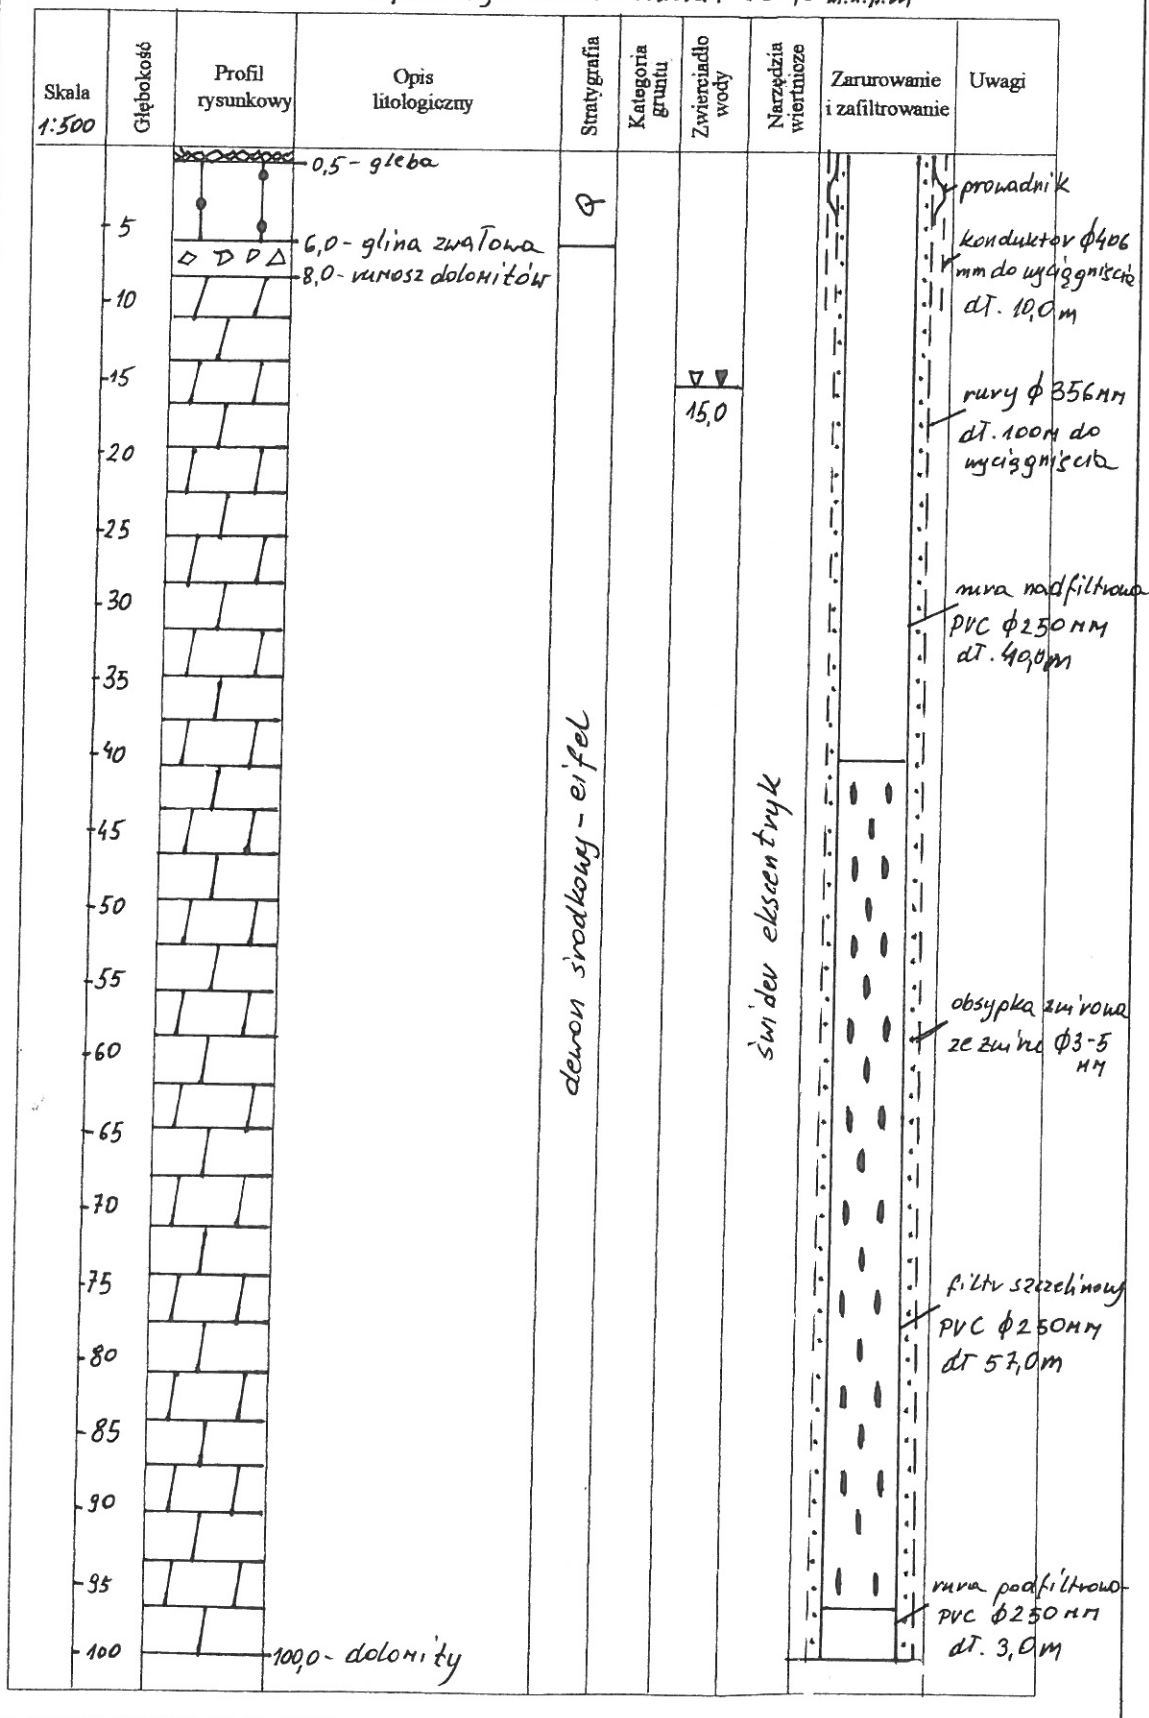 Skala
1:500
Głębokość
Profil
rysunkowy
Opis
litologiczny
Stratygrafia
Kategoria
gruntu
Zwierciadło
wody
Narzędzia
wiertnicze
Zarurowanie
i zafiltrowanie
Uwagi
0,5 - gleba
5
6,0 - glina zwałowa
8,0 - rumosz dolomitów
10
15
20
25
30
35
40
45
50
55
60
65
70
75
80
85
90
95
100
100,0 - dolomity
Q
dewon środkowy - eifel
15,0
świder ekscentryk
prowadnik
konduktor ϕ406
mm do wyciągnięcia
dł. 10,0 m
rury ϕ 356 mm
dł. 100m do
wyciągnięcia
rura nadfiltrowa
PVC ϕ250 mm
dł. 40,0m
obsypka żwirowa
ze żwiru ϕ3-5
mm
filtr szczelinowy
PVC ϕ250mm
dł 57,0m
rura podfiltrowa
PVC ϕ250 mm
dł. 3,0m